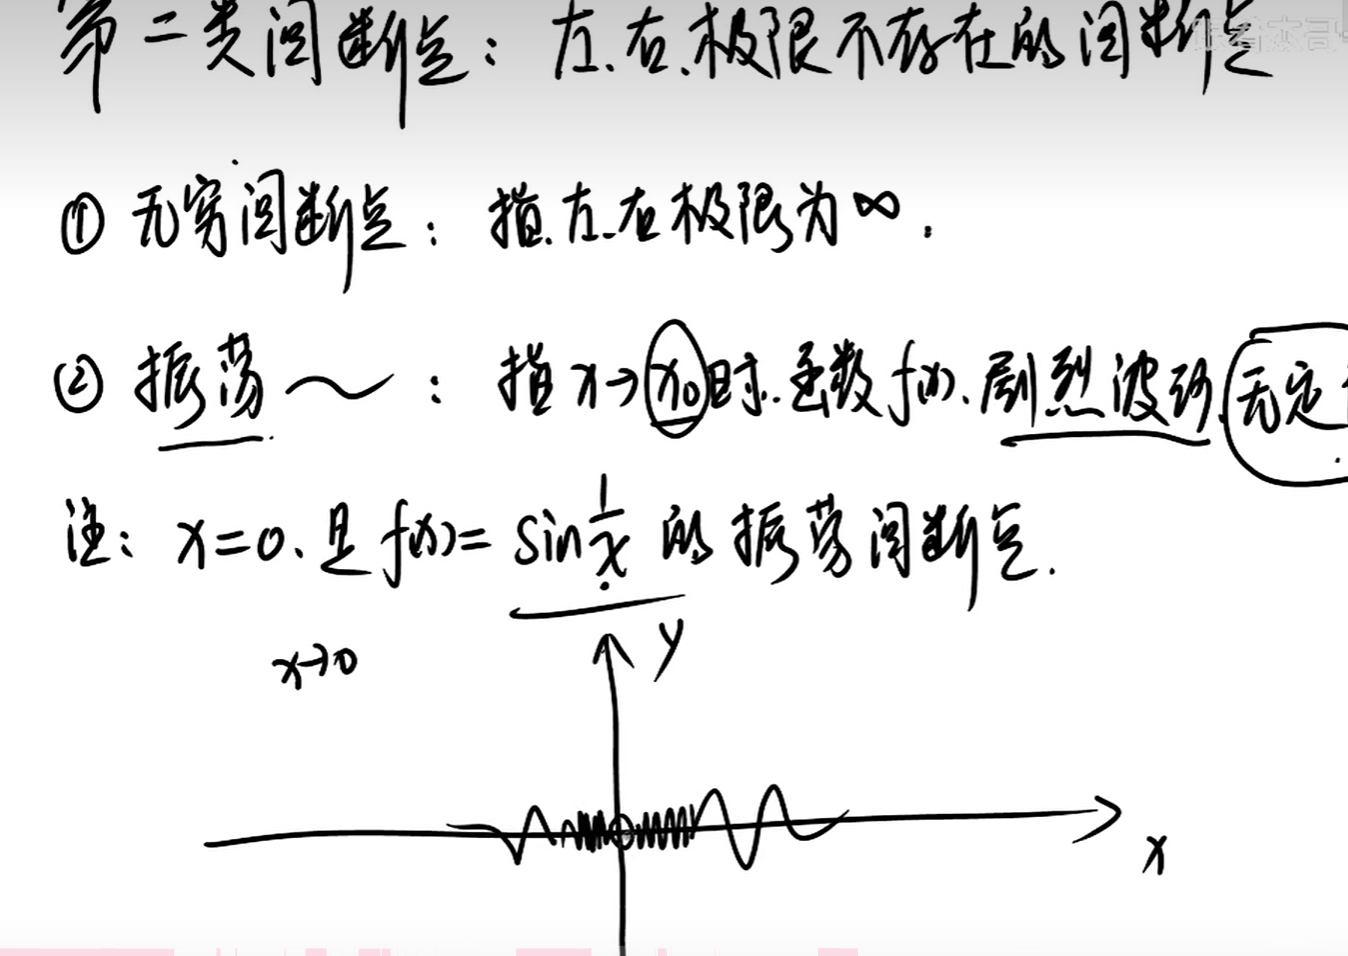 第二类间断点：左、右、极限不存在的间断点
① 无穷间断点：指左、右极限为∞.
② 振荡～：指x→x₀时.函数f(x).剧烈波动,无定
注：x=0.是f(x)=sin 1/x 的振荡间断点.
x→0
y
x